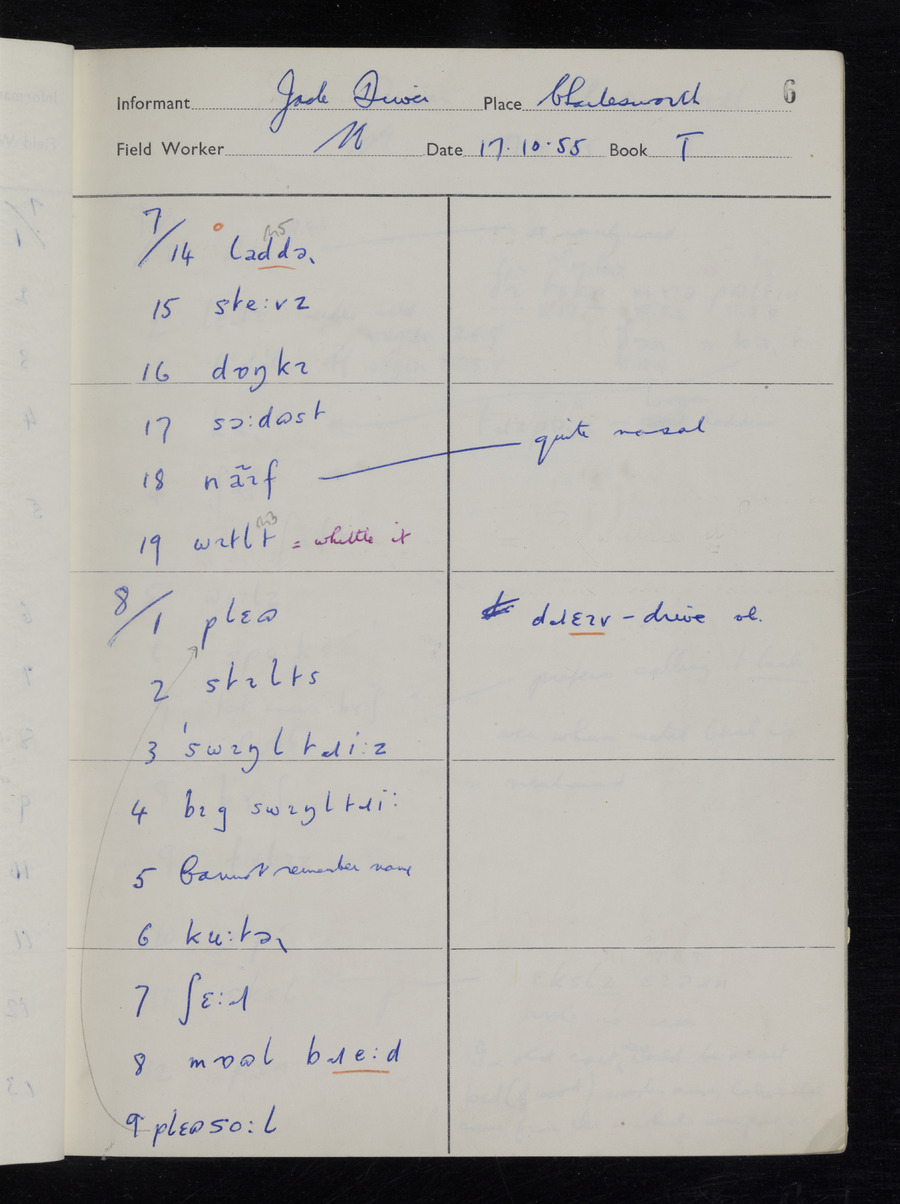 Informant Jack Place Charlesworth 6
Field Worker N Date 17.10.55 Book T
7/14 laddɚ
15 ste:vz
16 dɒŋkɪ
17 sɔ:dʊst
18 nãɪf quite nasal
19 wɪtlt = whittle it
8/1 plɛʊ dɹɛɪv - drive vb.
2 stɪlts
3 'swɪŋltɹi:z
4 bɪg swɪŋltɹi:
5 Cannot remember name
6 ku:tɚ
7 ʃɛ:ɹ
8 mɒʊl bɹe:d
9 plɛʊso:l